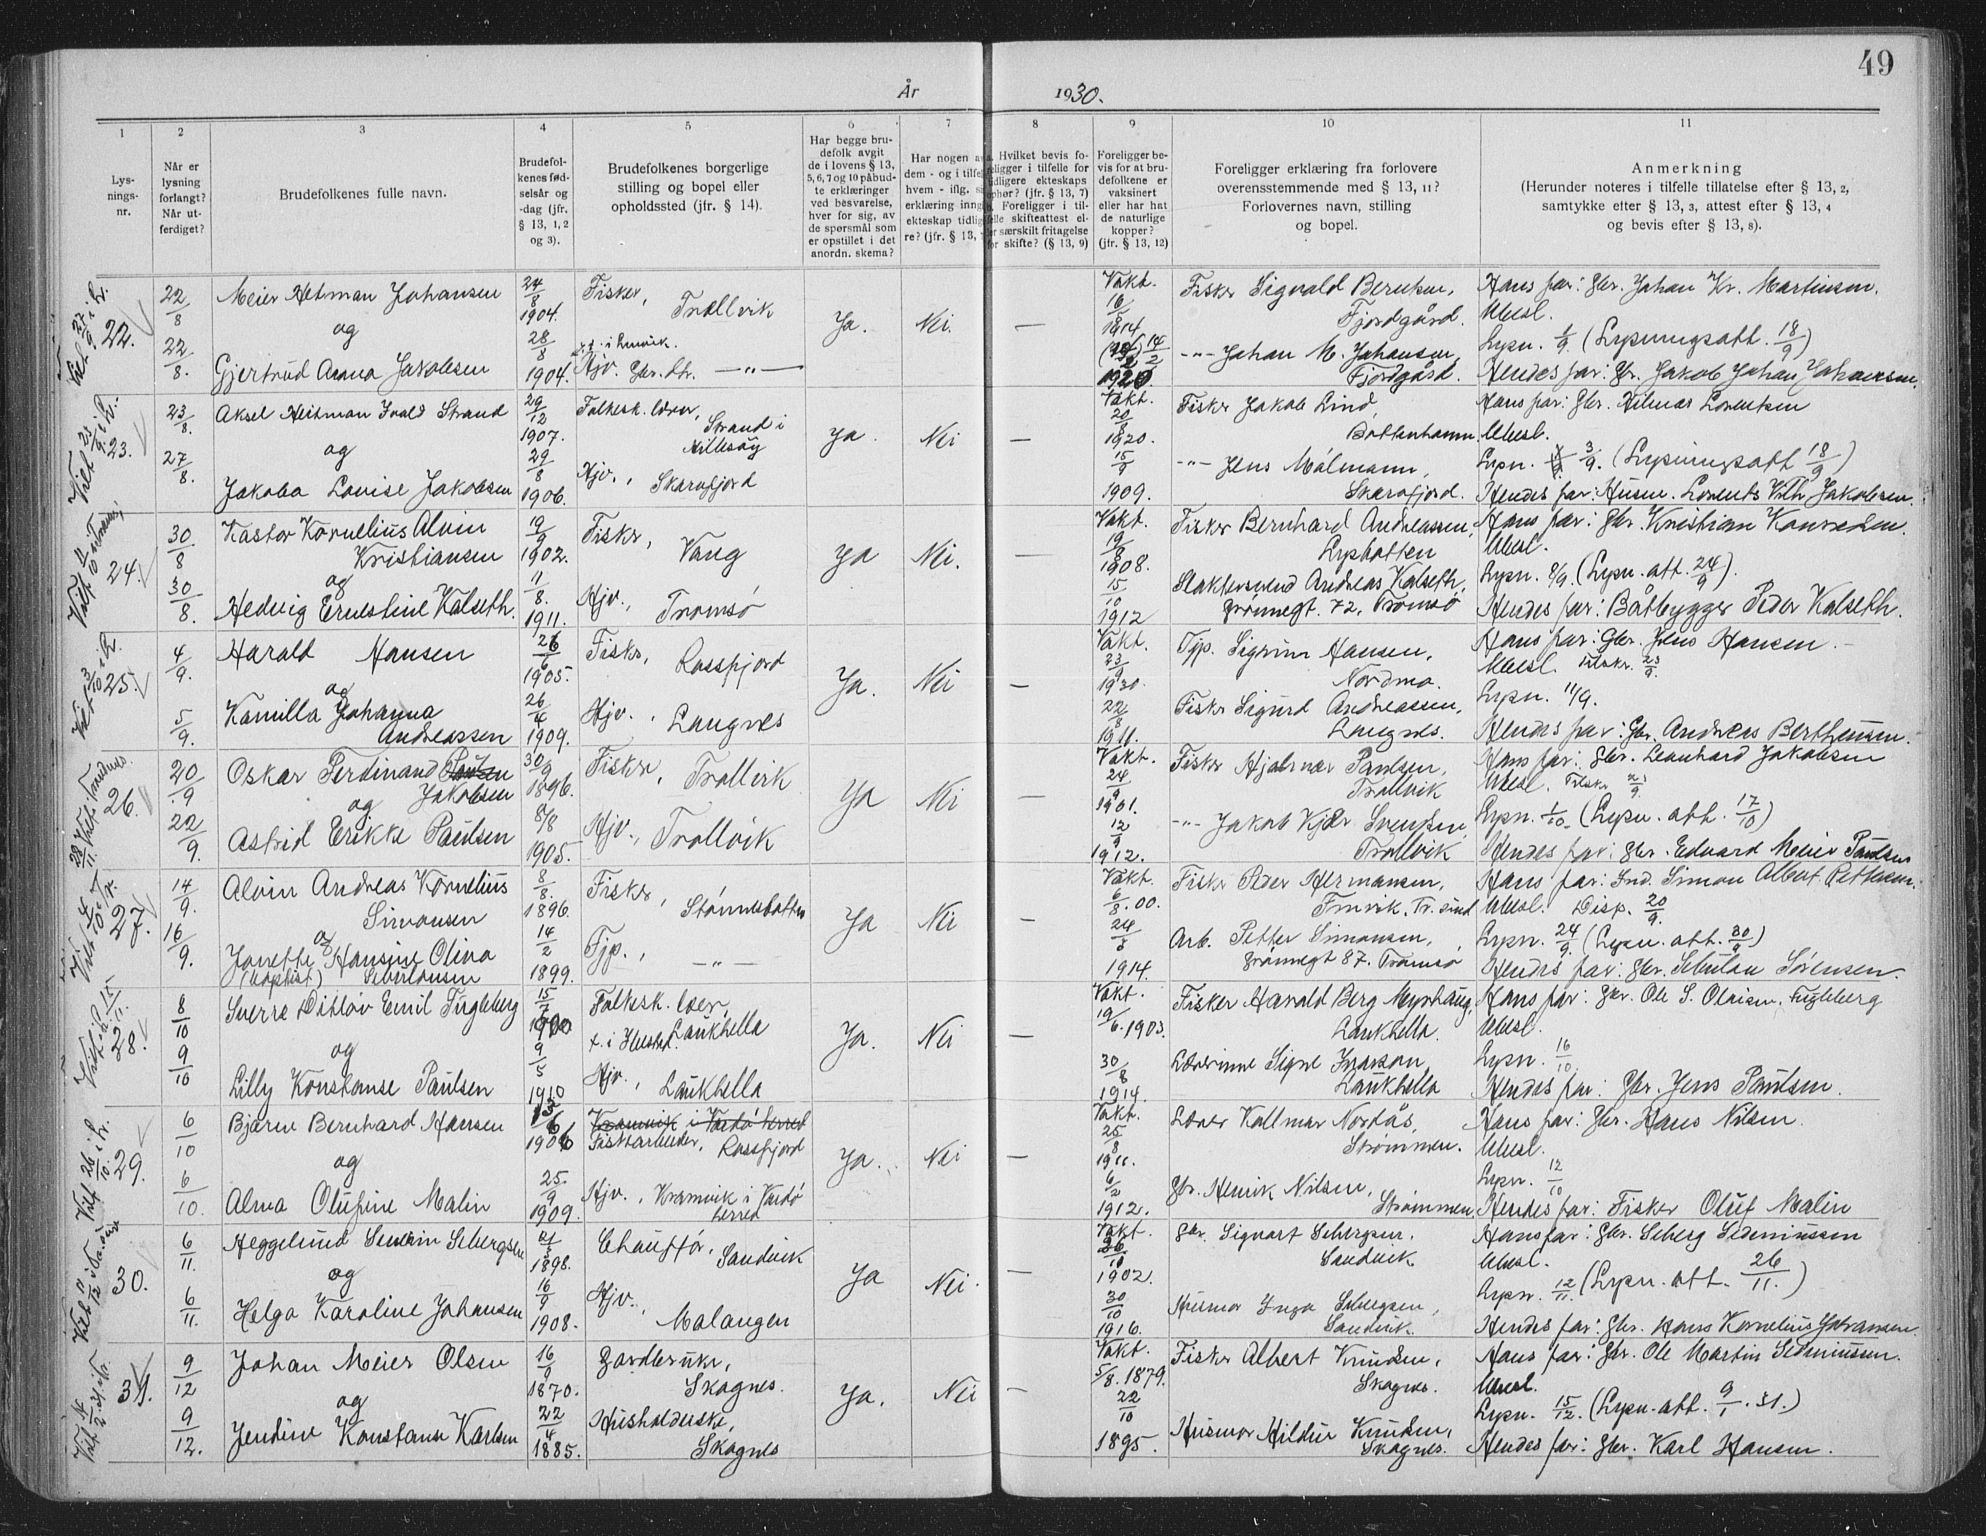 49
År 1930.
1 2 3 4 5 6 7 8 9 10 11
Lys-
nings-
nr.
Når er
lysning
forlangt?
Når ut-
ferdiget?
Brudefolkenes fulle navn.
Brudefol-
kenes fød-
selsår og
-dag (jfr.
§ 13, 1, 2
og 3).
Brudefolkenes borgerlige
stilling og bopel eller
opholdssted (jfr. § 14).
Har begge bru-
defolk avgit
de i lovens § 13,
5, 6, 7 og 10 påbud-
te erklæringer
ved besvarelse,
hver for sig, av
de spørsmål som
er opstillet i det
anordn. skema?
Har nogen av
dem - og i tilfelle
hvem - iflg.
erklæring inngått
ekteskap tidlige-
re? (jfr. § 13,
Hvilket bevis fo-
religger i tilfelle for
tidligere ekteskaps
ophør? (jfr. § 13, 7)
Foreligger i til-
felle skifteattest el-
er særskilt fritagelse
for skifte? (§ 13, 9)
Foreligger be-
vis for at bru-
defolkene er
vaksinert
eller har hat
de naturlige
kopper?
(jfr. § 13, 12)
Foreligger erklæring fra forlovere
overensstemmende med § 13, 11?
Forlovernes navn, stilling
og bopel.
Anmerkning
(Herunder noteres i tilfelle tillatelse efter § 13, 2,
samtykke efter § 13, 3, attest efter § 13, 4
og bevis efter § 13, 8).
22. 22/8 Meier Hetman Johansen 24/8 1904. Fisker, Trollvik Ja. Nei. — Vakt. 16/8 1914 Fisker Sigvald Berntsen, Fjordgård. Hans far: Gbr. Johan Kr. Martinsen.
og Ubesl.
Lysn. 1/9. (Lysningsatt. 18/9)
22/8. Gjertrud Anna Jakobsen 28/8 1904. Hjv. Gbr. dtr. —"— 14/2 1920 —"— Johan M. Johansen, Fjordgård. Hendes far: Gbr. Jakob Johan Johansen.
23. 23/8. Aksel Heitman Ivald Strand 29/12 1907. Folkesk. lærer, Strand i Hillesøy Ja. Nei — Vakt. 20/8 1920. Fisker Jakob Lind, Bottenhamn Hans far: Gbr. Hilmar Lorentsen
og Ubesl.
Lysn. 3/9. (Lysningsatt 18/9)
27/8. Jakoba Lovise Jakobsen 29/8 1906. Hjv., Skarsfjord 15/9 1909. —"— Jens Målmann, Skarsfjord. Hendes far: Husm. Lorents Vilh. Jakobsen.
24. 30/8 Kastor Kornelius Alvin Kristiansen 19/9 1902. Fisker, Vang Ja Nei. — Vakt. 19/8 1908. Fisker Bernhard Andreassen, Lysbotten Hans far: Gbr. Kristian Konradsen.
og Ubesl.
Lysn. 8/9. (Lysn. att. 24/9).
30/8. Hedvig Ernestine Kalseth. 11/8. 1911. Hjv., Tromsø 15/10 1912 Slaktersvend Andreas Kalseth, Grønnegt. 72, Tromsø Hendes far: Båtbygger Peder Kalseth.
25. 4/9. Harald Hansen 26/6 1905. Fisker, Rossfjord Ja. Nei — Vakt. 23/9 1930. Tjp. Sigrun Hansen, Nordmo. Hans far: Gbr. Jens Hansen.
og Ubesl. Tilskr. 23/9.
Lysn. 11/9.
5/9. Kamilla Johanna Andreassen 26/4 1909. Hjv., Langnes 22/8 1911. Fisker Sigurd Andreassen, Langnes. Hendes far: Gbr. Andreas Bertheussen.
26. 20/9 Oskar Ferdinand Paulsen Jakobsen 30/9 1896. Fisker, Trollvik Ja Nei — Vakt. 24/9 1901. Fisker Hjalmar Paulsen, Trollvik Hans far: Gbr. Leonhard Jakobsen
og Ubesl.
Lysn. 1/10. (Lysn. att. 17/10)
22/9. Astrid Erikke Paulsen 8/8 1905. Hjv., Trollvik 12/9 1912. —"— Jakob Kjær Svendsen, Trollvik Hendes far: Gbr. Edvard Meier Paulsen
27. 14/9. Alvin Andreas Kornelius Simonsen 8/8. 1896. Fisker, Stønnesbotten Ja Nei — Vakt. 6/8.00. Fisker Peder Hermansen, Hans far: Ind. Simon Albert Pettersen.
og Ubesl. Disp. 20/9.
Lysn. 24/9 (Lysn. att. 30/9)
16/9. Jonette Hansine Olina (baptist) 14/2 1899. Tjp., —"— 24/8 1914. Arb. Petter Simonsen, Grønnegt 87. Tromsø Hendes far: Gbr. Sebulon Sørensen.
28. 8/10 Sverre Ditlov Emil Fugleberg 15/7 1900 Folkesk. lær., Laukhella Ja. Nei — Vakt. 19/6. 1903. Fisker Harald Berg Myrhaug, Laukhella. Hans far: Gbr. Ole S. Olaisen, Fugleberg
og Ubesl.
Lysn. 16/10
9/10 Lilly Konstanse Paulsen 9/5 1910 Hjv., Laukhella 30/8 1914. Lærerinne Signe Ivarson, Laukhella Hendes far: Gbr. Jens Paulsen.
29. 6/10 Bjarne Bernhard Hansen 1906 Kramvik i Vardø herred Fiskarbeider, Rossfjord Ja. Nei — Vakt. 25/8 1911. Lærer Kallmar Nordås, Strømmen. Hans far: Gbr. Hans Nilsen.
og Ubesl.
Lysn. 12/10
6/10. Alma Olufine Malin 25/9 1909. Hjv., Kramvik i Vardø herred 6/2 1912. Gbr. Henrik Nilsen, Strømmen, Hendes far: Fisker Oluf Malin
30. 6/11. Heggelund Severin Sebergsen 1898. Chauffør, Sandvik Ja Nei. — Vakt. 26/10 1902. Gbr. Sigvart Sebergsen, Sandvik Hans far: Gbr. Seberg Sedeniussen
og Ubesl.
Lysn. 12/11 (Lysn. att. 26/11.)
6/11. Helga Karoline Johansen 16/9 1908. Hjv., Malangen 30/10 1916. Husmor Inga Sebergsen, Sandvik. Hendes far: Gbr. Hans Kornelius Johansen.
31. 9/12 Johan Meier Olsen 16/9 1870. Gardbruker, Skognes. Ja. Nei — Vakt. 5/8. 1879. Fisker Albert Knudsen, Skognes. Hans far: Gbr. Ole Martin Sedeniussen.
og Ubesl.
Lysn. 15/12. (Lysn. att. 9/1. 31.)
9/12. Jendine Konstanse Karlsen 22/4 1885. Husholderske, Skognes 22/10 1895. Husmor Hildur Knudsen, Skognes. Hendes far: Gbr. Karl Hansen.